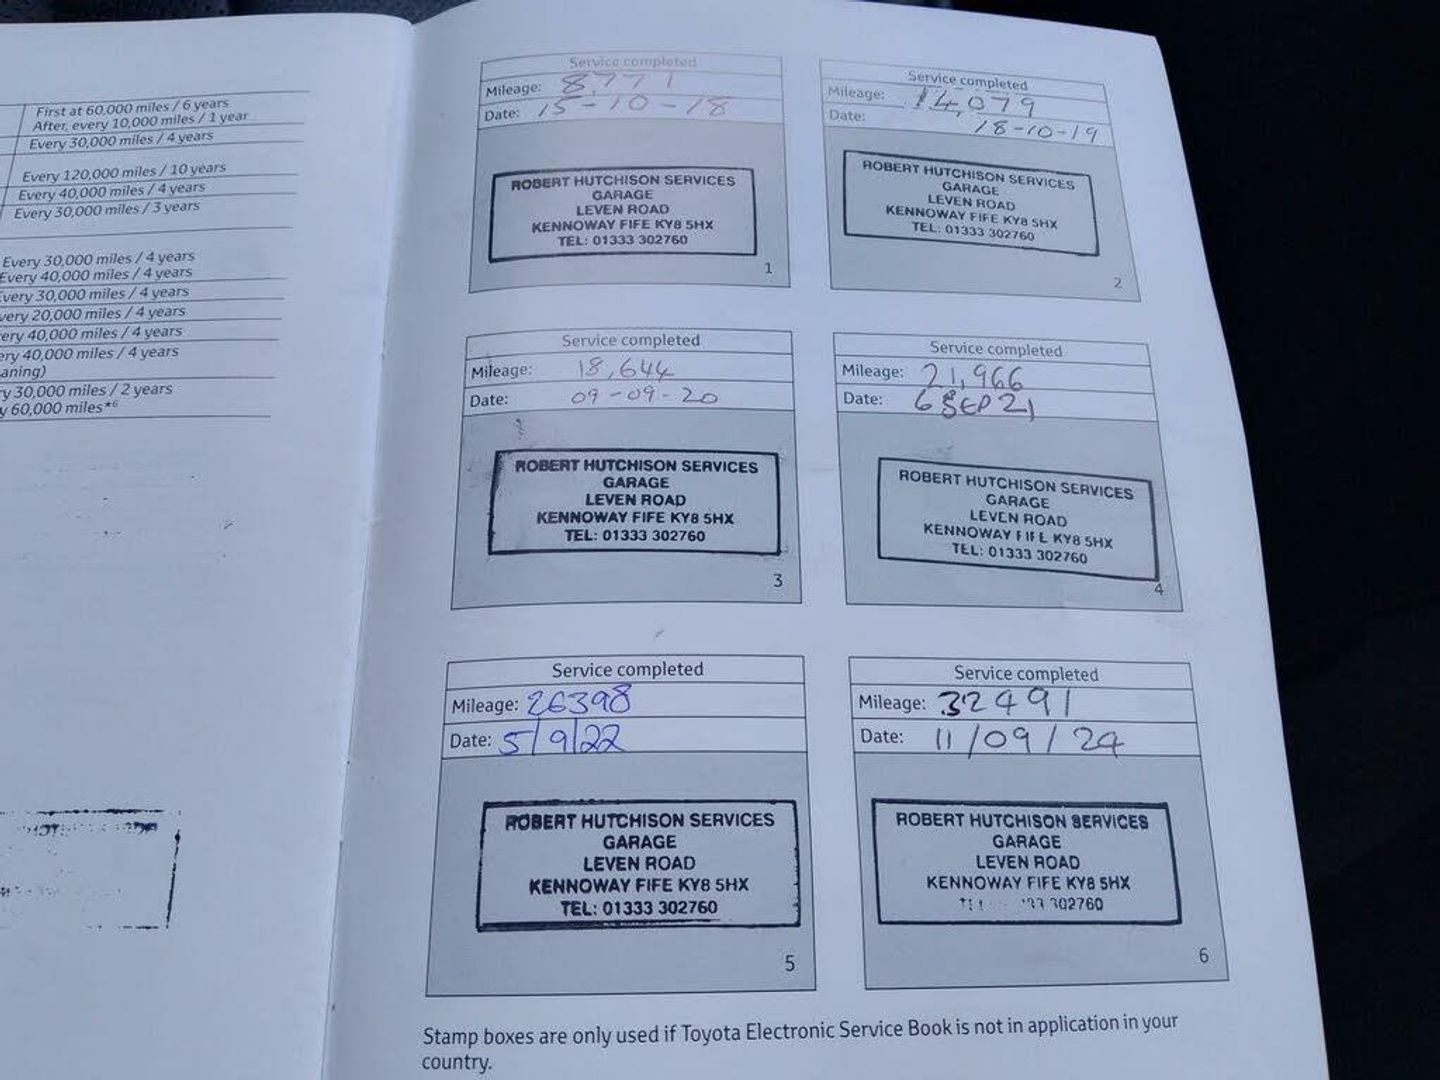 First at 60,000 miles / 6 years
After, every 10,000 miles / 1 year
Every 30,000 miles / 4 years
Every 120,000 miles / 10 years
Every 40,000 miles / 4 years
Every 30,000 miles / 3 years
Every 30,000 miles / 4 years
Every 40,000 miles / 4 years
very 30,000 miles / 4 years
very 20,000 miles / 4 years
ery 40,000 miles / 4 years
ery 40,000 miles / 4 years
aning)
ry 30,000 miles / 2 years
y 60,000 miles*6
Service completed
Mileage: 8,771
Date: 15-10-18
ROBERT HUTCHISON SERVICES
GARAGE
LEVEN ROAD
KENNOWAY FIFE KY8 5HX
TEL: 01333 302760
1
Service completed
Mileage: 14,079
Date: 18-10-19
ROBERT HUTCHISON SERVICES
GARAGE
LEVEN ROAD
KENNOWAY FIFE KY8 5HX
TEL: 01333 302760
2
Service completed
Mileage: 18,644
Date: 09-09-20
ROBERT HUTCHISON SERVICES
GARAGE
LEVEN ROAD
KENNOWAY FIFE KY8 5HX
TEL: 01333 302760
3
Service completed
Mileage: 21,966
Date: 6 SEP 21
ROBERT HUTCHISON SERVICES
GARAGE
LEVEN ROAD
KENNOWAY FIFE KY8 5HX
TEL: 01333 302760
4
Service completed
Mileage: 26398
Date: 5/9/22
ROBERT HUTCHISON SERVICES
GARAGE
LEVEN ROAD
KENNOWAY FIFE KY8 5HX
TEL: 01333 302760
5
Service completed
Mileage: 32491
Date: 11/09/24
ROBERT HUTCHISON SERVICES
GARAGE
LEVEN ROAD
KENNOWAY FIFE KY8 5HX
302760
6
Stamp boxes are only used if Toyota Electronic Service Book is not in application in your
country.